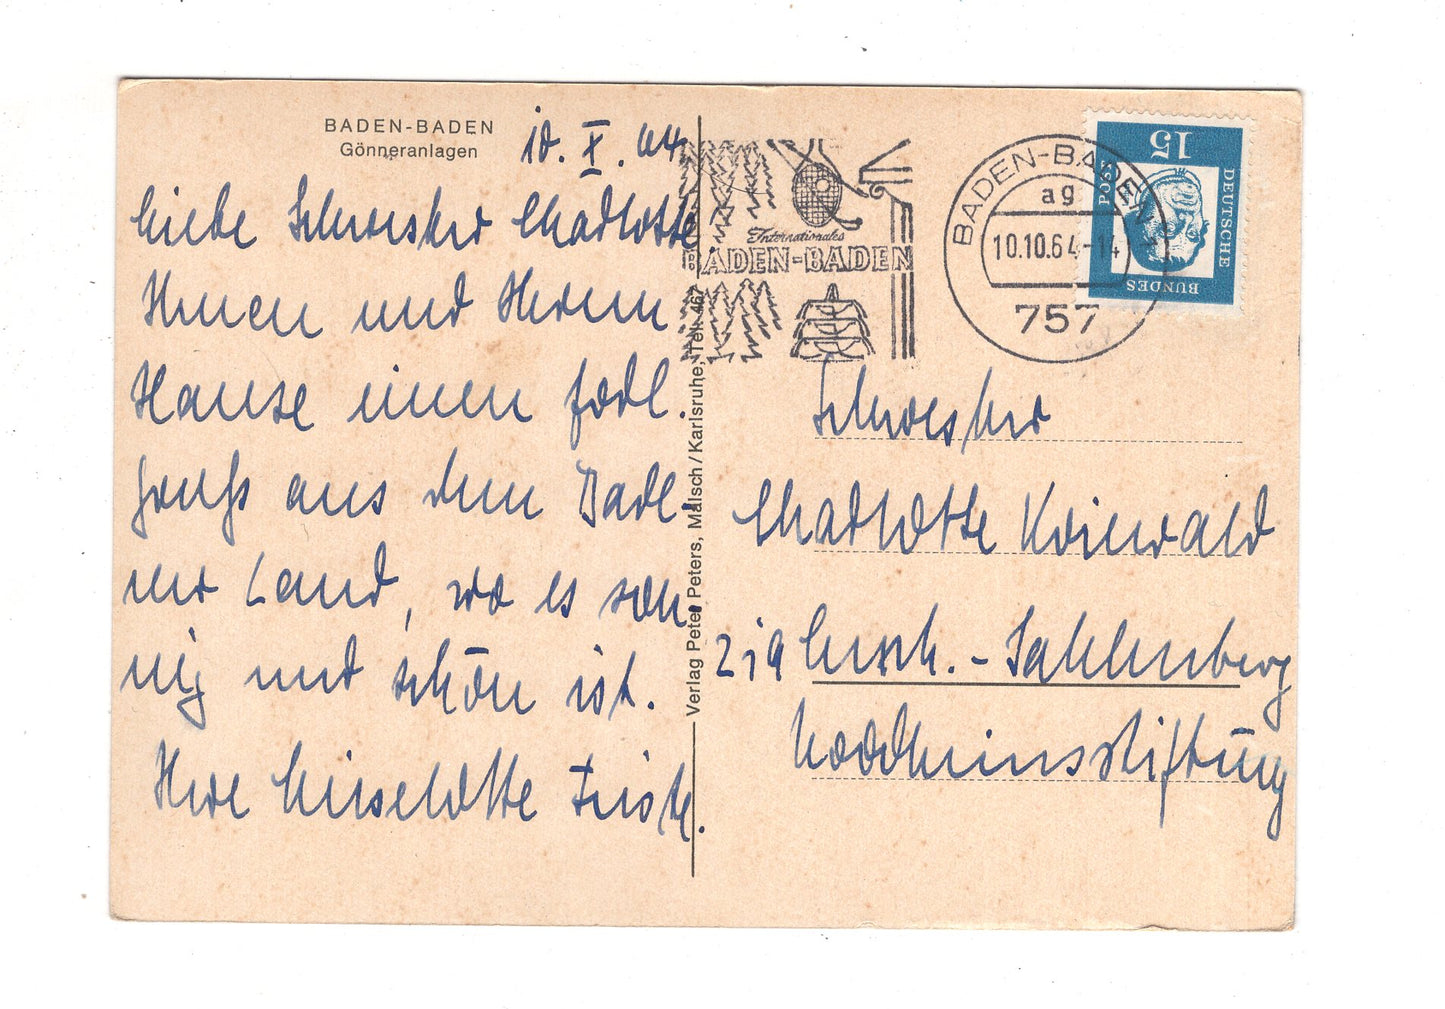 BADEN-BADEN
Gönneranlagen
10. X. 64
Liebe Schwester Charlotte
Ihnen und Ihrem
Hause einen herzl.
Gruß aus dem Bade-
ner Land, wo es son-
nig und schön ist.
Ihre Lieselotte
Verlag Peter Peters, Malsch/Karlsruhe, Tel. 467
Internationales
BADEN-BADEN
BADEN-BADEN
ag
10.10.64-14
757
15
DEUTSCHE
BUNDES
POST
Schwester
Charlotte
Stiftung